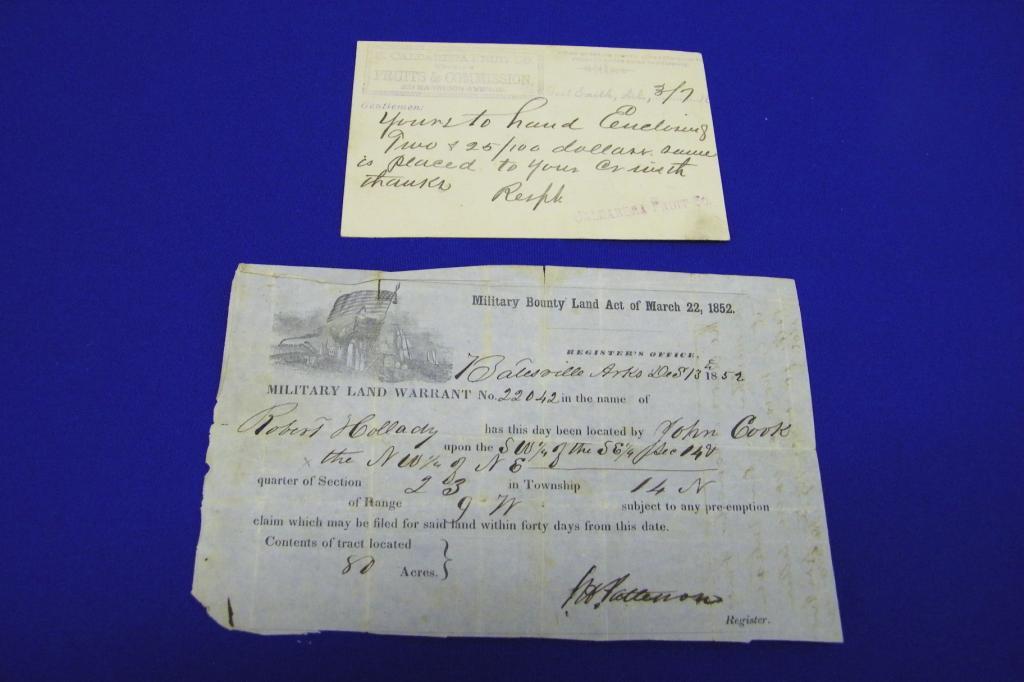 CALDARERA FRUIT CO.
FRUITS & COMMISSION,
Fort Smith, Ark., 3/7
Gentlemen:
Yours to hand Enclosing
Two & 25/100 dollars. Same
is placed to your Cr with
thanks Respk
CALDARERA FRUIT CO.
Military Bounty Land Act of March 22, 1852.
REGISTER'S OFFICE,
Batesville Arks Dec 13 1852
MILITARY LAND WARRANT No. 22042 in the name of
Robert Hollady has this day been located by John Cook
upon the S W ¼ of the S E ¼ Sec 14 &
x the N W ¼ of N E
quarter of Section 23 in Township 14 N
of Range 9 W subject to any pre-emption
claim which may be filed for said land within forty days from this date.
Contents of tract located
80 Acres. }
Patterson
Register.